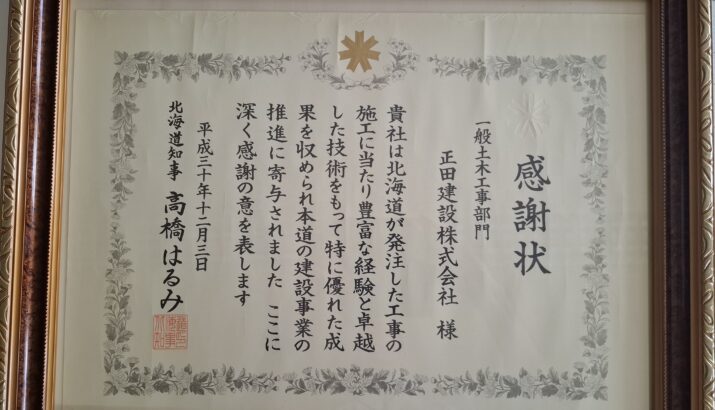 感謝状
一般土木工事部門
正田建設株式会社 様
貴社は北海道が発注した工事の
施工に当たり豊富な経験と卓越
した技術をもって特に優れた成
果を収められ本道の建設事業の
推進に寄与されました ここに
深く感謝の意を表します
平成三十年十二月三日
北海道知事 高橋はるみ